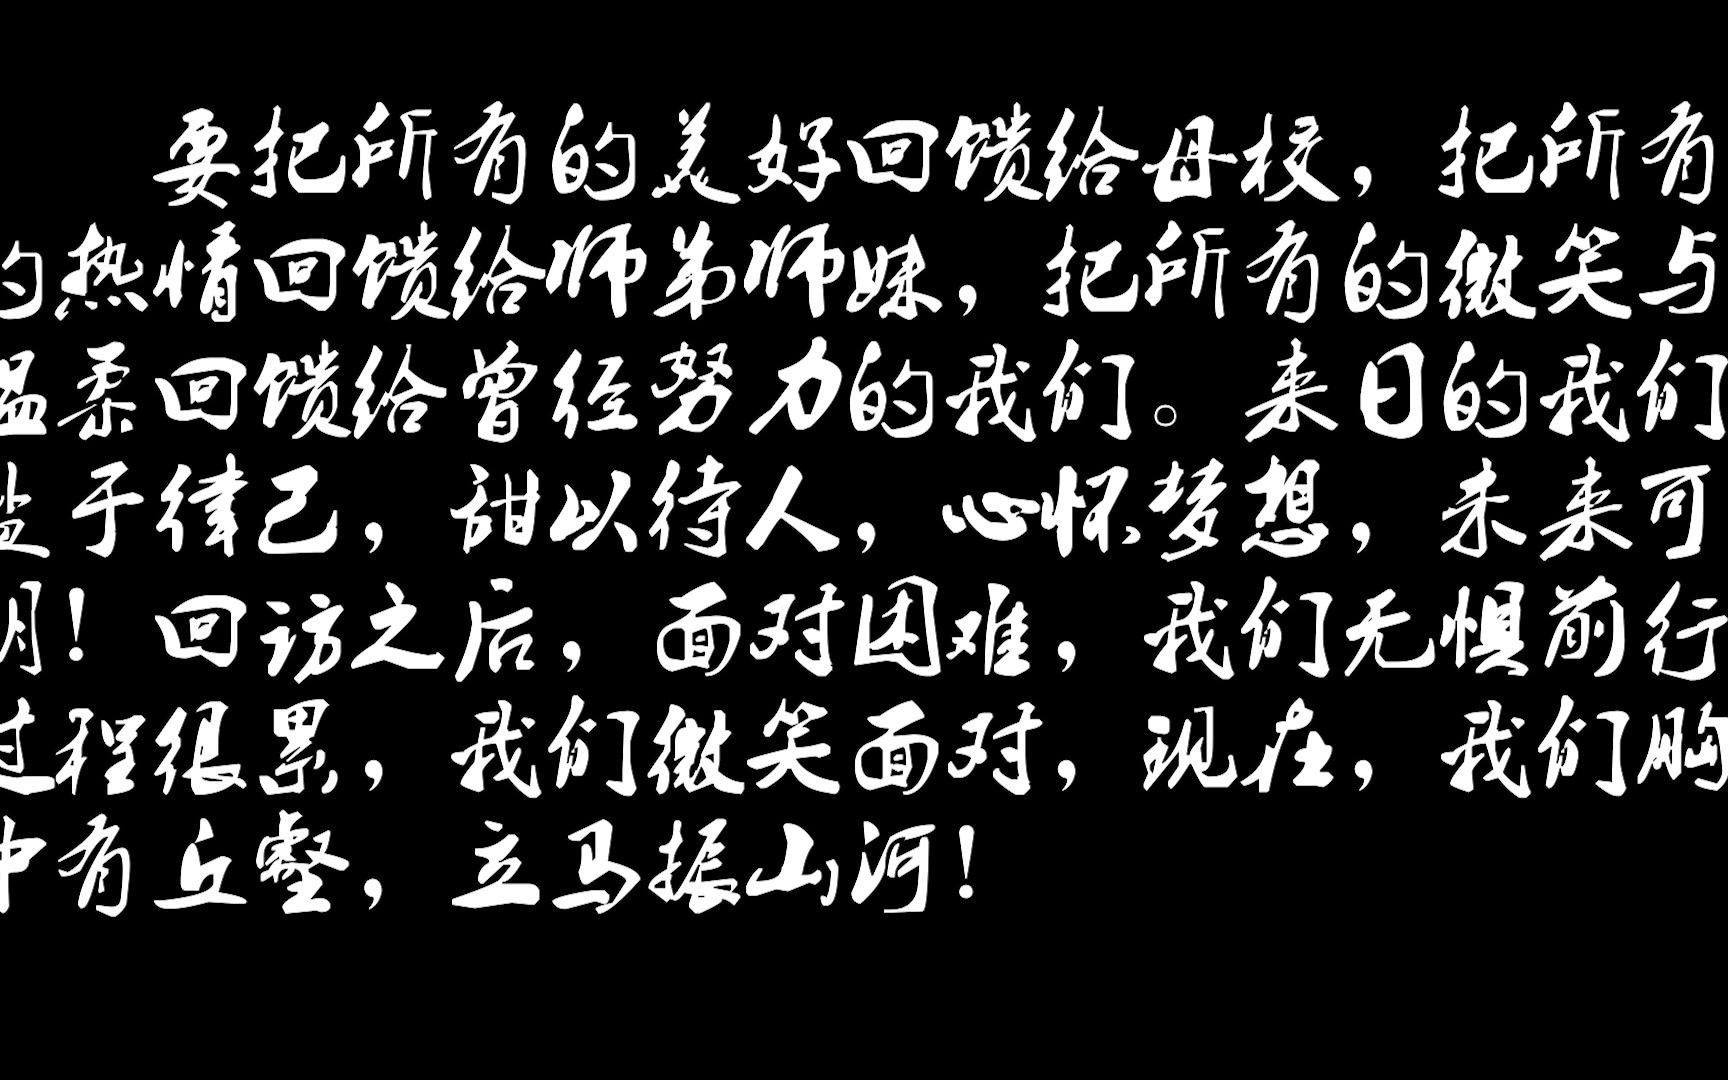 要把所有的美好回馈给母校，把所有
的热情回馈给师弟师妹，把所有的微笑与
温柔回馈给曾经努力的我们。来日的我们
盐于律己，甜以待人，心怀梦想，未来可
期！回访之后，面对困难，我们无惧前行
过程很累，我们微笑面对，现在，我们胸
中有丘壑，立马振山河！